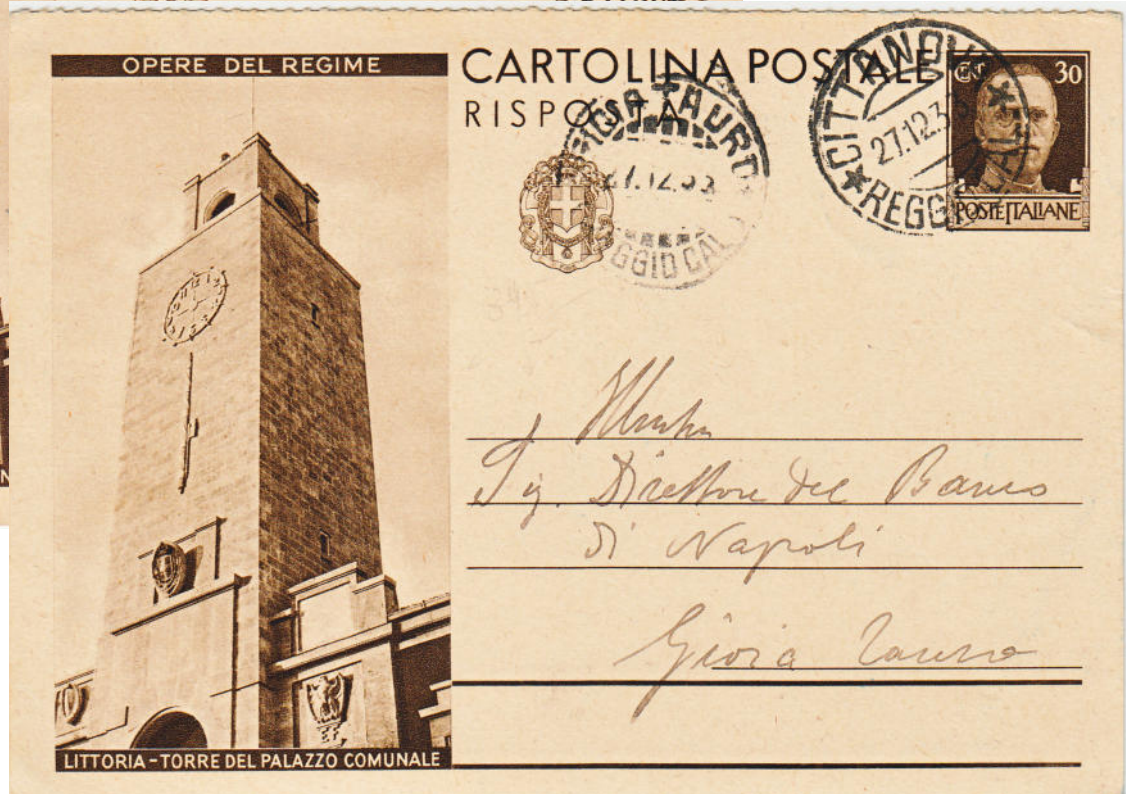 OPERE DEL REGIME
CARTOLINA POSTALE
RISPOSTA
GIOIA TAURO
27.12.33
GGIO CAL
CITTANOVA
27.12.3
REGG
30
POSTE ITALIANE
Sig. Direttore del Banco
di Napoli
Gioia Tauro
E F
LITTORIA - TORRE DEL PALAZZO COMUNALE